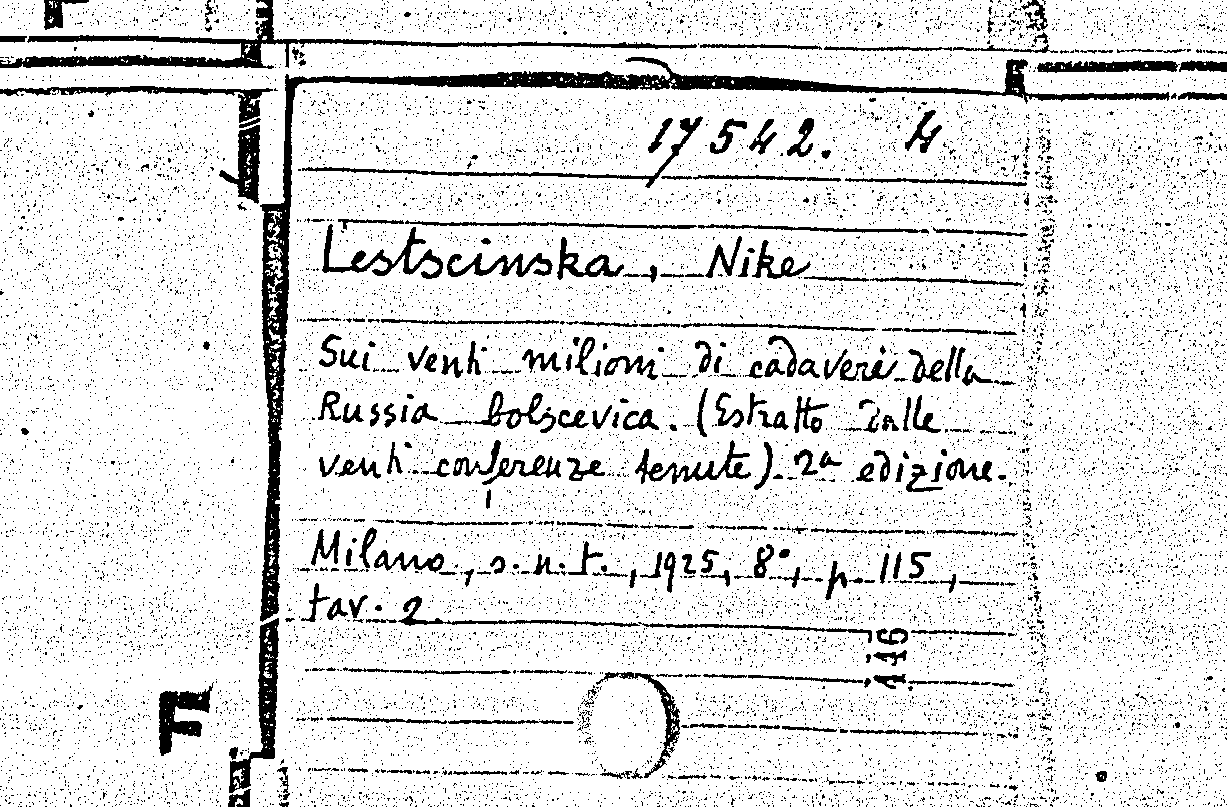 17542. 4
Lestscinska, Nike
Sui venti milioni di cadaveri della
Russia bolscevica. (Estratto dalle
venti conferenze tenute). 2ª edizione.
Milano, s. n. t., 1925, 8°, p. 115,
tav. 2.
116
F